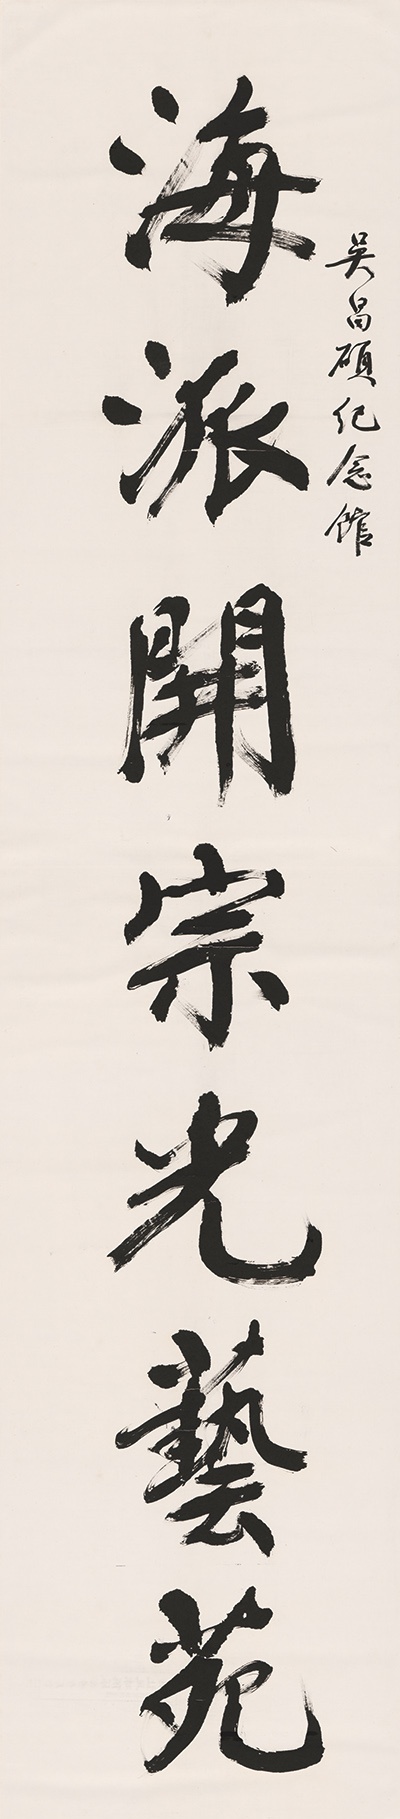 吴昌碩纪念館
海派開宗光藝苑